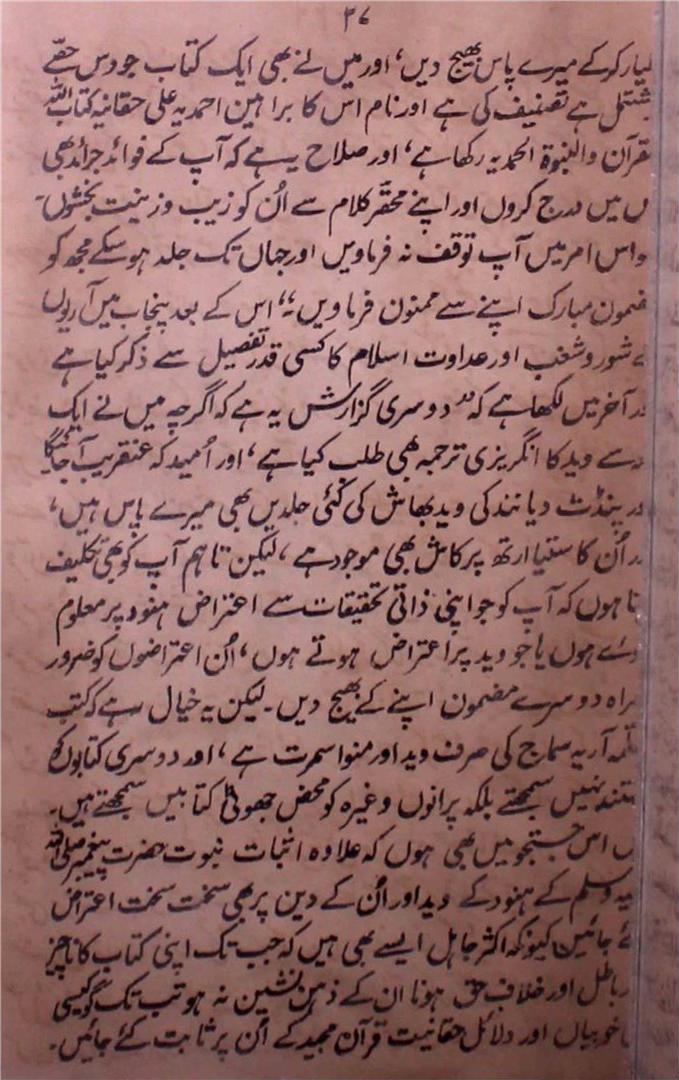 ۳۷
تیار کر کے میرے پاس بھیج دیں، اور میں نے بھی ایک کتاب جو دس حصے
مشتمل ہے تصنیف کی ہے اور نام اس کا براہین احمدیہ علی حقانیہ کتاب اللہ
القرآن والنبوۃ المحمدیہ رکھا ہے، اور صلاح یہ ہے کہ آپ کے فوائد جرائد بھی
س میں درج کروں اور اپنے محقر کلام سے اُن کو زیب و زینت بخشوں۔
سو اس امر میں آپ توقف نہ فرماویں اور جہاں تک جلد ہو سکے مجھ کو
مضمون مبارک اپنے سے ممنون فرماویں"، اس کے بعد پنجاب میں آریوں
کے شور و شغب اور عداوت اسلام کا کسی قدر تفصیل سے ذکر کیا ہے
ور آخر میں لکھا ہے کہ "دوسری گزارش یہ ہے کہ اگرچہ میں نے ایک
سے وید کا انگریزی ترجمہ بھی طلب کیا ہے، اور اُمید کہ عنقریب آ جائیگا
ور پنڈت دیانند کی وید بھاش کی کئی جلدیں بھی میرے پاس ہیں،
ور اُن کا ستیارتھ پرکاش بھی موجود ہے، لیکن تاہم آپ کو بھی تکلیف
تا ہوں کہ آپ کو جو اپنی ذاتی تحقیقات سے اعتراض ہنود پر معلوم
ئے ہوں یا جو وید پر اعتراض ہوتے ہوں، اُن اعتراضوں کو ضرور
مراہ دوسرے مضمون اپنے کے بھیج دیں۔ لیکن یہ خیال رہے کہ کتب
مسلمہ آریہ سماج کی صرف وید اور منواسمرت ہے، اور دوسری کتابوں کو
مستند نہیں سمجھتے بلکہ پرانوں وغیرہ کو محض جھوٹی کتابیں سمجھتے ہیں۔
ں اس جستجو میں بھی ہوں کہ علاوہ اثبات نبوت حضرت پیغمبر صلی اللہ
علیہ وسلم کے ہنود کے وید اور اُن کے دین پر بھی سخت سخت اعتراض
ئے جائیں کیونکہ اکثر جاہل ایسے بھی ہیں کہ جب تک اپنی کتاب کا ناچیز
ر باطل اور خلاف حق ہونا ان کے ذہن نشین نہ ہو تب تک گو کیسی
خوبیاں اور دلائل حقانیت قرآن مجید کے اُن پر ثابت کئے جائیں۔